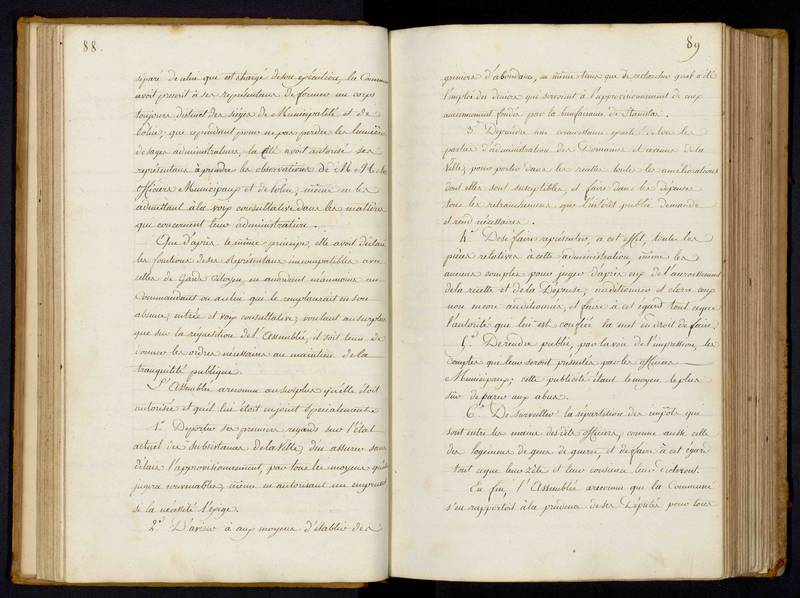 88.
séparé de celui qui est chargé de son exécution, la Commune
avoit prescrit à ses représentans de former un corps
toujours distinct des sièges de Municipalité et de
Police; que cependant pour ne pas perdre les lumières
de sages administrateurs, la Cité avoit autorisé ses
représentans à prendre les observations de M. M. les
officiers Municipaux et de Police, même en les
admettant à la voix consultative dans les matières
qui concernent leur administration.
Que d'après le même principe, elle avoit déclaré
les fonctions de ses Représentans incompatibles avec
celles de Garde Citoyen, en accordant néanmoins au
Commandant ou à celui qui le remplaceroit en son
absence, entrée et voix consultative, voulant au surplus
que sur la réquisition de l'Assemblée, il soit tenu de
donner les ordres nécessaires au maintien de la
tranquilité publique.
L'Assemblée a reconnu au surplus qu'elle étoit
autorisée et qu'il lui étoit enjoint spécialement.
1.º De porter ses premiers regards sur l'état
actuel des subsistances de la Ville, d'en assurer sans
délais l'approvisionnement, par tous les moyens qu'elle
jugera convenables, même en autorisant un emprunt
si la nécessité l'exige.
2.º D'aviser à aux moyens d'établir des
89
greniers d'abondance, en même tems que de rechercher quel a été
l'emploi des deniers qui servoient à l'approvisionnement de ceux
anciennement fondés par la bienfaisance de Stanislas.
3.º De prendre une connoissance exacte de toutes les
parties d'administration des Domaines et revenus de la
Ville, pour porter dans les recettes toutes les améliorations
dont elles sont susceptibles, et faire dans les dépenses
tous les retranchemens que l'intérêt public demande
et rend nécessaires.
4.º De se faire représenter, à cet effet, toutes les
pièces relatives à cette administration, même les
anciens comptes pour juger d'après eux de l'accroissement
de la recette et de la Dépense; auditionner et clore ceux
non encore auditionnés, et faire à cet égard tout ce que
l'autorité qui lui est confiée la met en droit de faire.
5.º De rendre publics, par la voie de l'impression, les
comptes qui leur seront présentés par les officiers
Municipaux; cette publicité étant le moyen le plus
sûr de parer aux abus.
6.º De surveiller la répartition des impôts qui
sont entre les mains desdits officiers, comme aussi celle
des logemens de gens de guerre, et de faire à cet égard
tout ce que leur zèle et leur conscience leur dicteront.
En fin, l'Assemblée a reconnu que la Commune
s'en rapportoit à la prudence de ses Députés pour tous